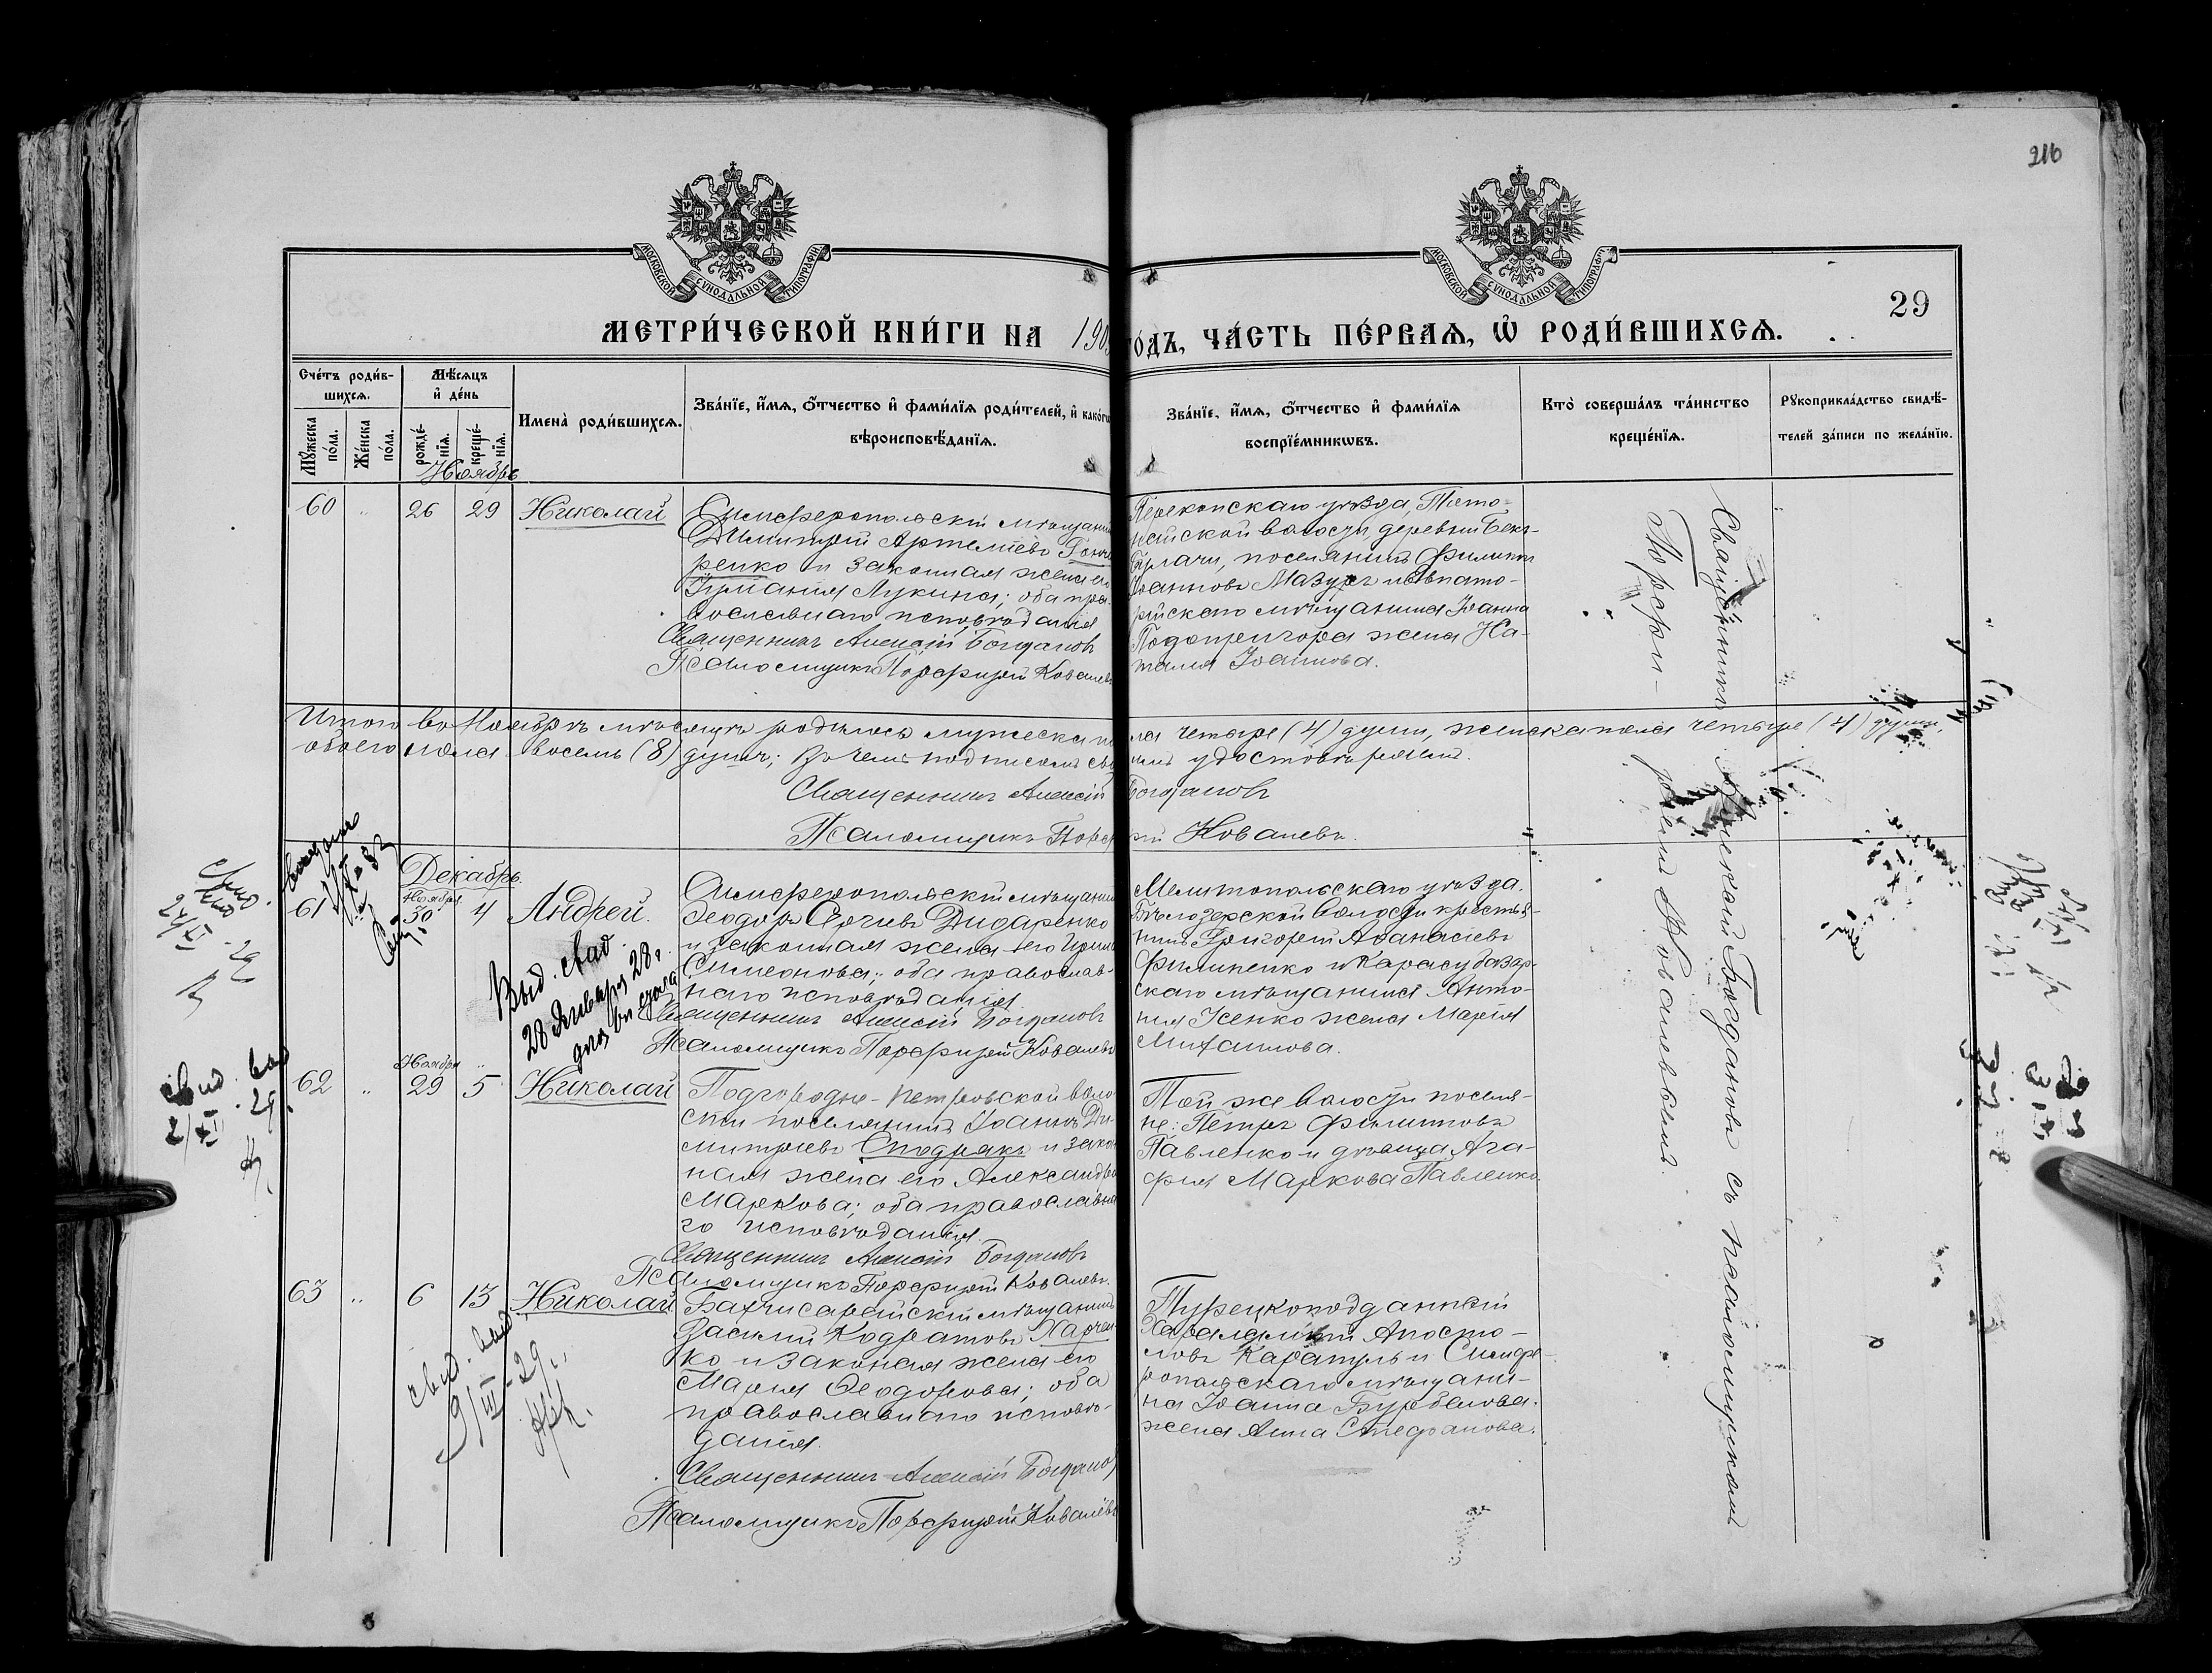 216
МОСКОВСКОЙ СѴНОДАЛЬНОЙ ТИПОГРАФІИ
МОСКОВСКОЙ СѴНОДАЛЬНОЙ ТИПОГРАФІИ
29
МЕТРИ́ЧЕСКОЙ КНИ́ГИ НА 190
ГО́ДЪ, ЧА́СТЬ ПЕ́РВАѦ, Ѽ РОДИ́ВШИХСѦ.
Сче́тъ роди́в-
шихсѧ.
Мѣ́сѧцъ
и҆ де́нь
Мꙋ́жеска по́ла.
Же́нска по́ла.
рожде́-
нїѧ.
креще́-
нїѧ.
Имена̀ роди́вшихсѧ.
Зва́нїе, и҆́мѧ, ѻ҆́тчество и҆ фами́лїѧ роди́телей, и҆ како́гѡ
вѣроисповѣ́данїѧ.
Зва́нїе, и҆́мѧ, ѻ҆́тчество и҆ фами́лїѧ
воспрїе́мникѡвъ.
Кто̀ соверша́лъ та́инство
креще́нїѧ.
Рꙋкоприкла́дство свидѣ́-
телей за́писи по жела́нїю.
Ноябрь
60 " 26 29 Николай
Симферопольскій мѣщанин
Димитрій Артеміевъ Гонча
ренко и законная жена его
Лукина; оба пра-
вославнаго исповѣданія
Священникъ Алексій Богдановъ
Псаломщикъ Порфирій Ковалевъ
Перекопскаго уѣзда,
волости деревни
поселянинъ Филиппъ
Іоанновъ Мазуръ и Евпато-
рійскаго мѣщанина Іоанна
жена На-
талія Іоаннова.
Итого въ Ноябрѣ мѣсяцѣ родилось мужеска по
ла четыре (4) души, женска пола четыре (4) души,
обоего пола восемь (8) душъ; въ чемъ подписомъ сво
имъ удостовѣряемъ.
Священникъ Алексій
Богдановъ
Псаломщикъ Порфи
рій Ковалевъ.
Декабрь.
Ноября
61 30 4 Андрей.
Симферопольскій мѣщанин
Ѳеодоръ Дидаренко
и законная жена его Ирина
Симеонова; оба православ-
наго исповѣданія
Священникъ Алексій Богдановъ
Псаломщикъ Порфирій Ковалевъ
Мелитопольскаго уѣзда.
Бѣлозерской волости крестья-
нинъ Григорій Аѳанасіевъ
Филипенко и Карасубазар-
скаго мѣщанина Анто-
нія Усенко жена Марія
Михаилова.
Выд. свид.
28 Января 28 г.
для
Ноября
62 " 29 5 Николай
Подгородне-Петровской воло
сти поселянинъ Іоаннъ Ди-
митріевъ и закон
ная жена его Александра
Маркова; оба православна
го исповѣданія.
Священникъ Алексій Богдановъ
Псаломщикъ Порфирій Ковалевъ.
Той же волости поселя-
не: Петръ Филипповъ
Павленко и дѣвица Ага-
фія Маркова Павленко.
свид. выд.
63 " 6 13 Николай
Бахчисарайскій мѣщанинъ
Василій Кодратовъ Харчен-
ко и законная жена его
Марія Ѳеодорова; оба
православнаго исповѣ-
данія.
Священникъ Алексій Богданов
Псаломщикъ Порфирій Ковалевъ
Турецкоподданный
Харалампій Апосто-
ловъ и Симфе-
ропольскаго мѣщани-
на Іоанна
жена Анна Стефанова.
свид. выд.
Священникъ Алексій Богдановъ съ псаломщикомъ
Порфи-
ріемъ Ковалевымъ.